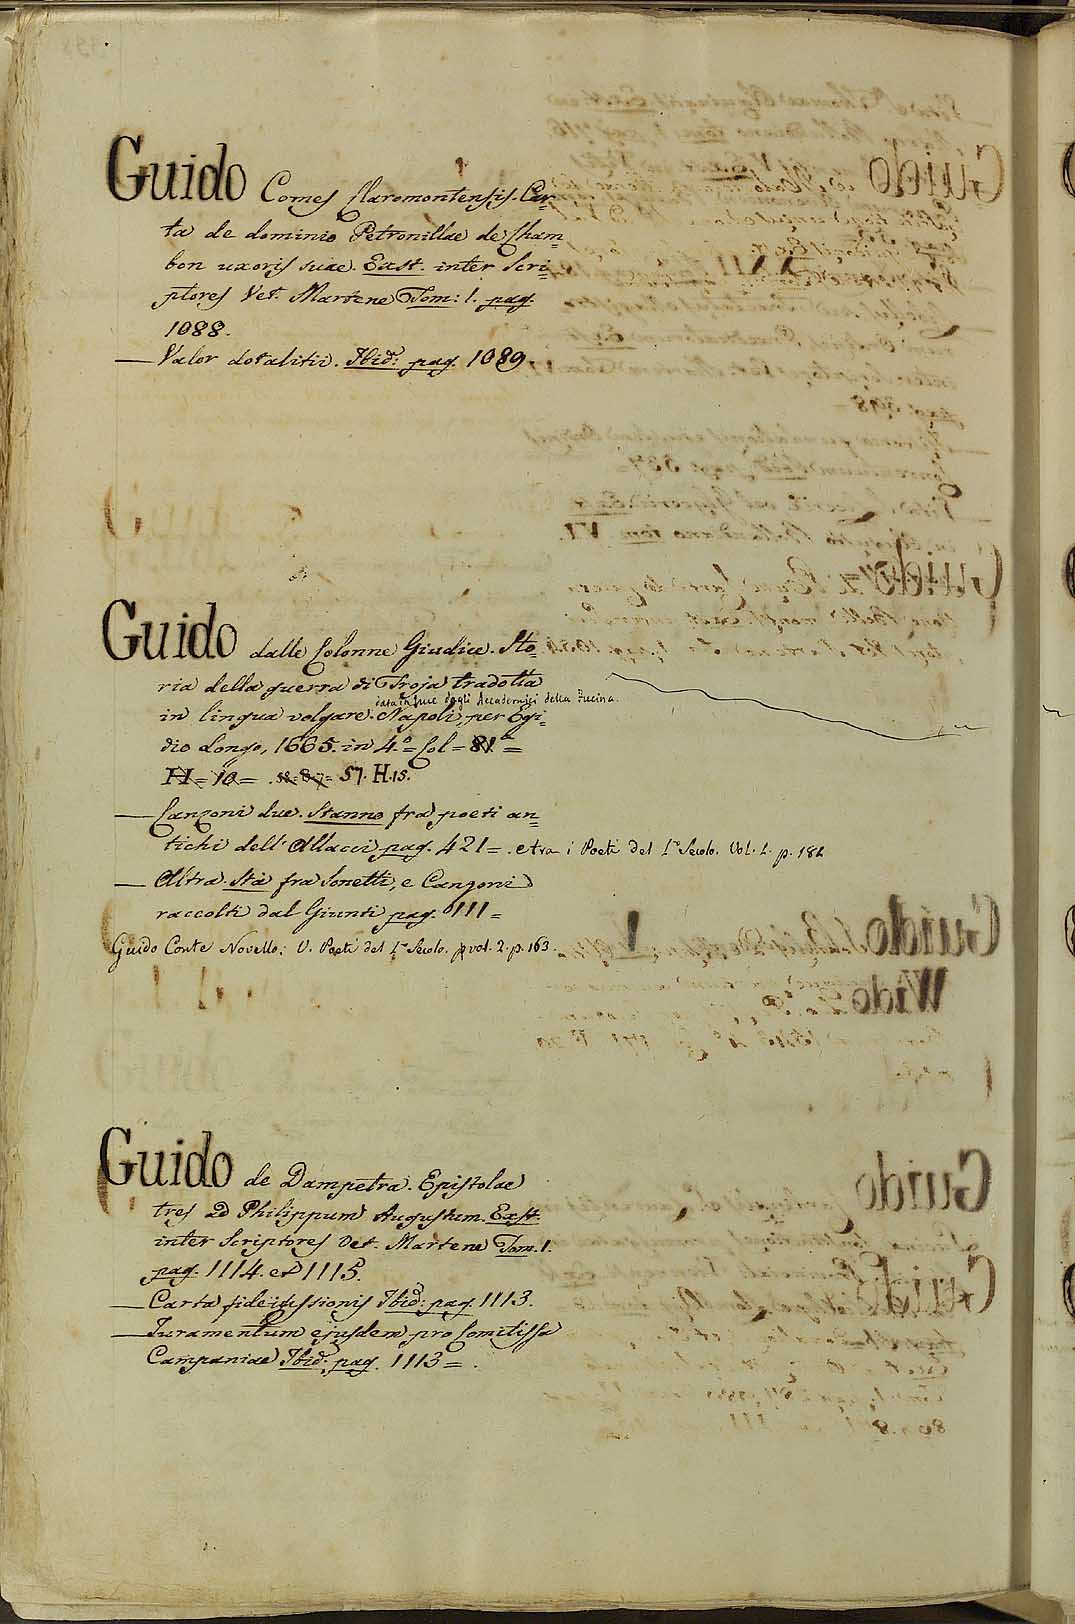 Guido Comes Claromontensis. Car=
ta de dominio Petronillae de Cham=
bon uxoris suae. Exst. inter Scri=
ptores Vet. Martene Tom: 1. pag.
1088.
— Valor dotalitii. Ibid: pag. 1089.
Guido dalle Colonne Giudice. Sto=
ria della guerra di Troja tradotta
data in luce dagli Accademici della Fucina.
in lingua volgare. Napoli, per Egi=
dio Longo, 1665. in 4.º = Col = 81 =
H = 10 = 57. H.15.
— Canzoni due. Stanno fra poeti an=
tichi dell' Allacci pag. 421 = . e tra i Poeti del 1.º Secolo. Vol. 1. p. 182
— Altra. Sta fra Sonetti, e Canzoni
raccolti dal Giunti pag. 111 =
Guido Conte Novello: V. Poeti del 1.º Secolo. vol. 2. p. 163.
Guido de Dampetra. Epistolae
tres ad Philippum Augustum. Exst.
inter Scriptores Vet. Martene Tom. 1.
pag. 1114. et 1115.
— Carta fideiussionis Ibid: pag. 1113.
— Juramentum ejusdem pro Comitissa
Campaniae Ibid: pag. 1113 = .